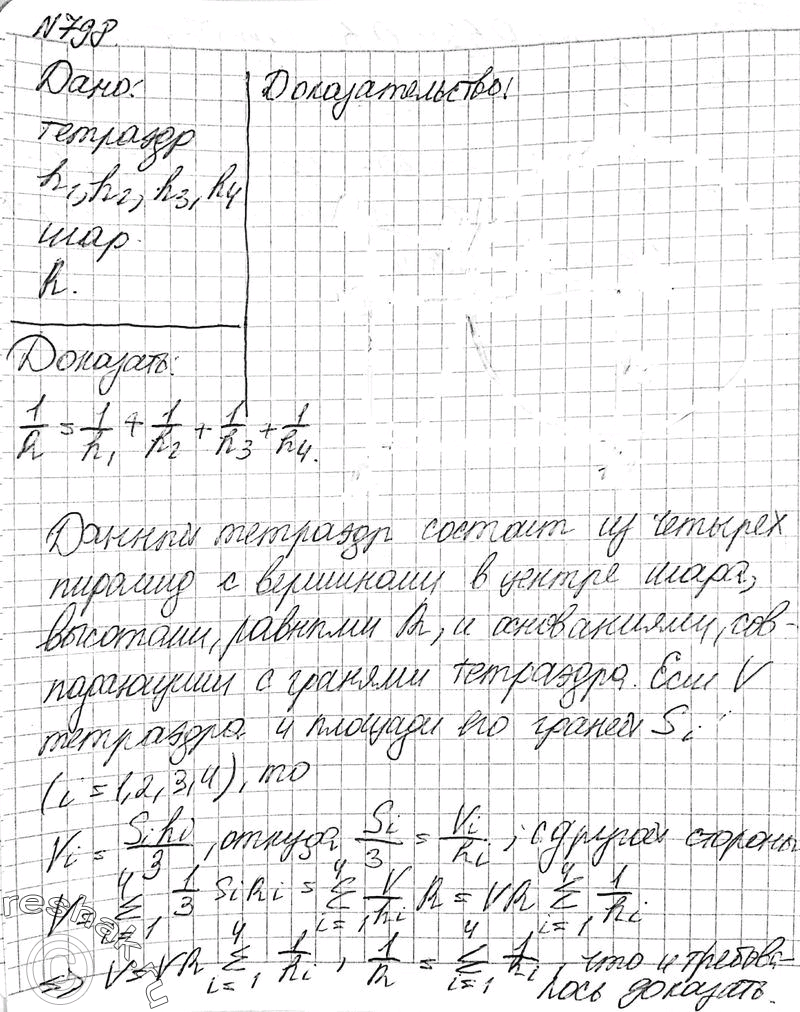 N798.
Дано:
тетраэдр
h₁, h₂, h₃, h₄
шар
R.
Доказательство:
Доказать:
1/R = 1/h₁ + 1/h₂ + 1/h₃ + 1/h₄.
Данный тетраэдр состоит из четырех
пирамид с вершинами в центре шара,
высотами, равными R, и основаниями, сов-
падающими с гранями тетраэдра. Если V
тетраэдра и площади его граней Sᵢ
(i = 1, 2, 3, 4), то
Vᵢ = Sᵢhᵢ/3, откуда Sᵢ/3 = Vᵢ/hᵢ; с другой стороны
V = ∑⁴ᵢ₌₁ 1/3 SᵢRᵢ = ∑⁴ᵢ₌₁ V/hᵢ R = VR ∑⁴ᵢ₌₁ 1/hᵢ
=> V = VR ∑⁴ᵢ₌₁ 1/hᵢ, 1/R = ∑⁴ᵢ₌₁ 1/hᵢ, что и требова-
лось доказать.
reshak.ru
©